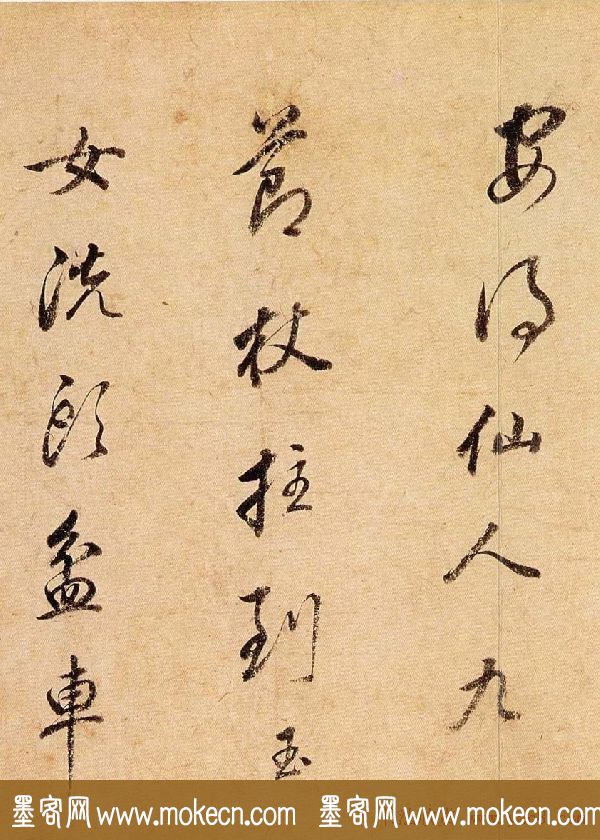 安得仙人九
節杖拄到玉
女洗頭盆車
墨客网 www.mokecn.com 墨客网 www.mokecn.com